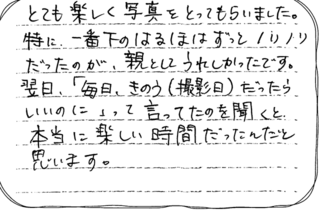 とても楽しく写真をとってもらいました。
特に、一番下のはるほはずっとノリノリ
だったのが、親としてうれしかったです。
翌日、「毎日、きのう(撮影日)だったら
いいのに」って言ってたのを聞くと
本当に楽しい時間だったんだと
思います。